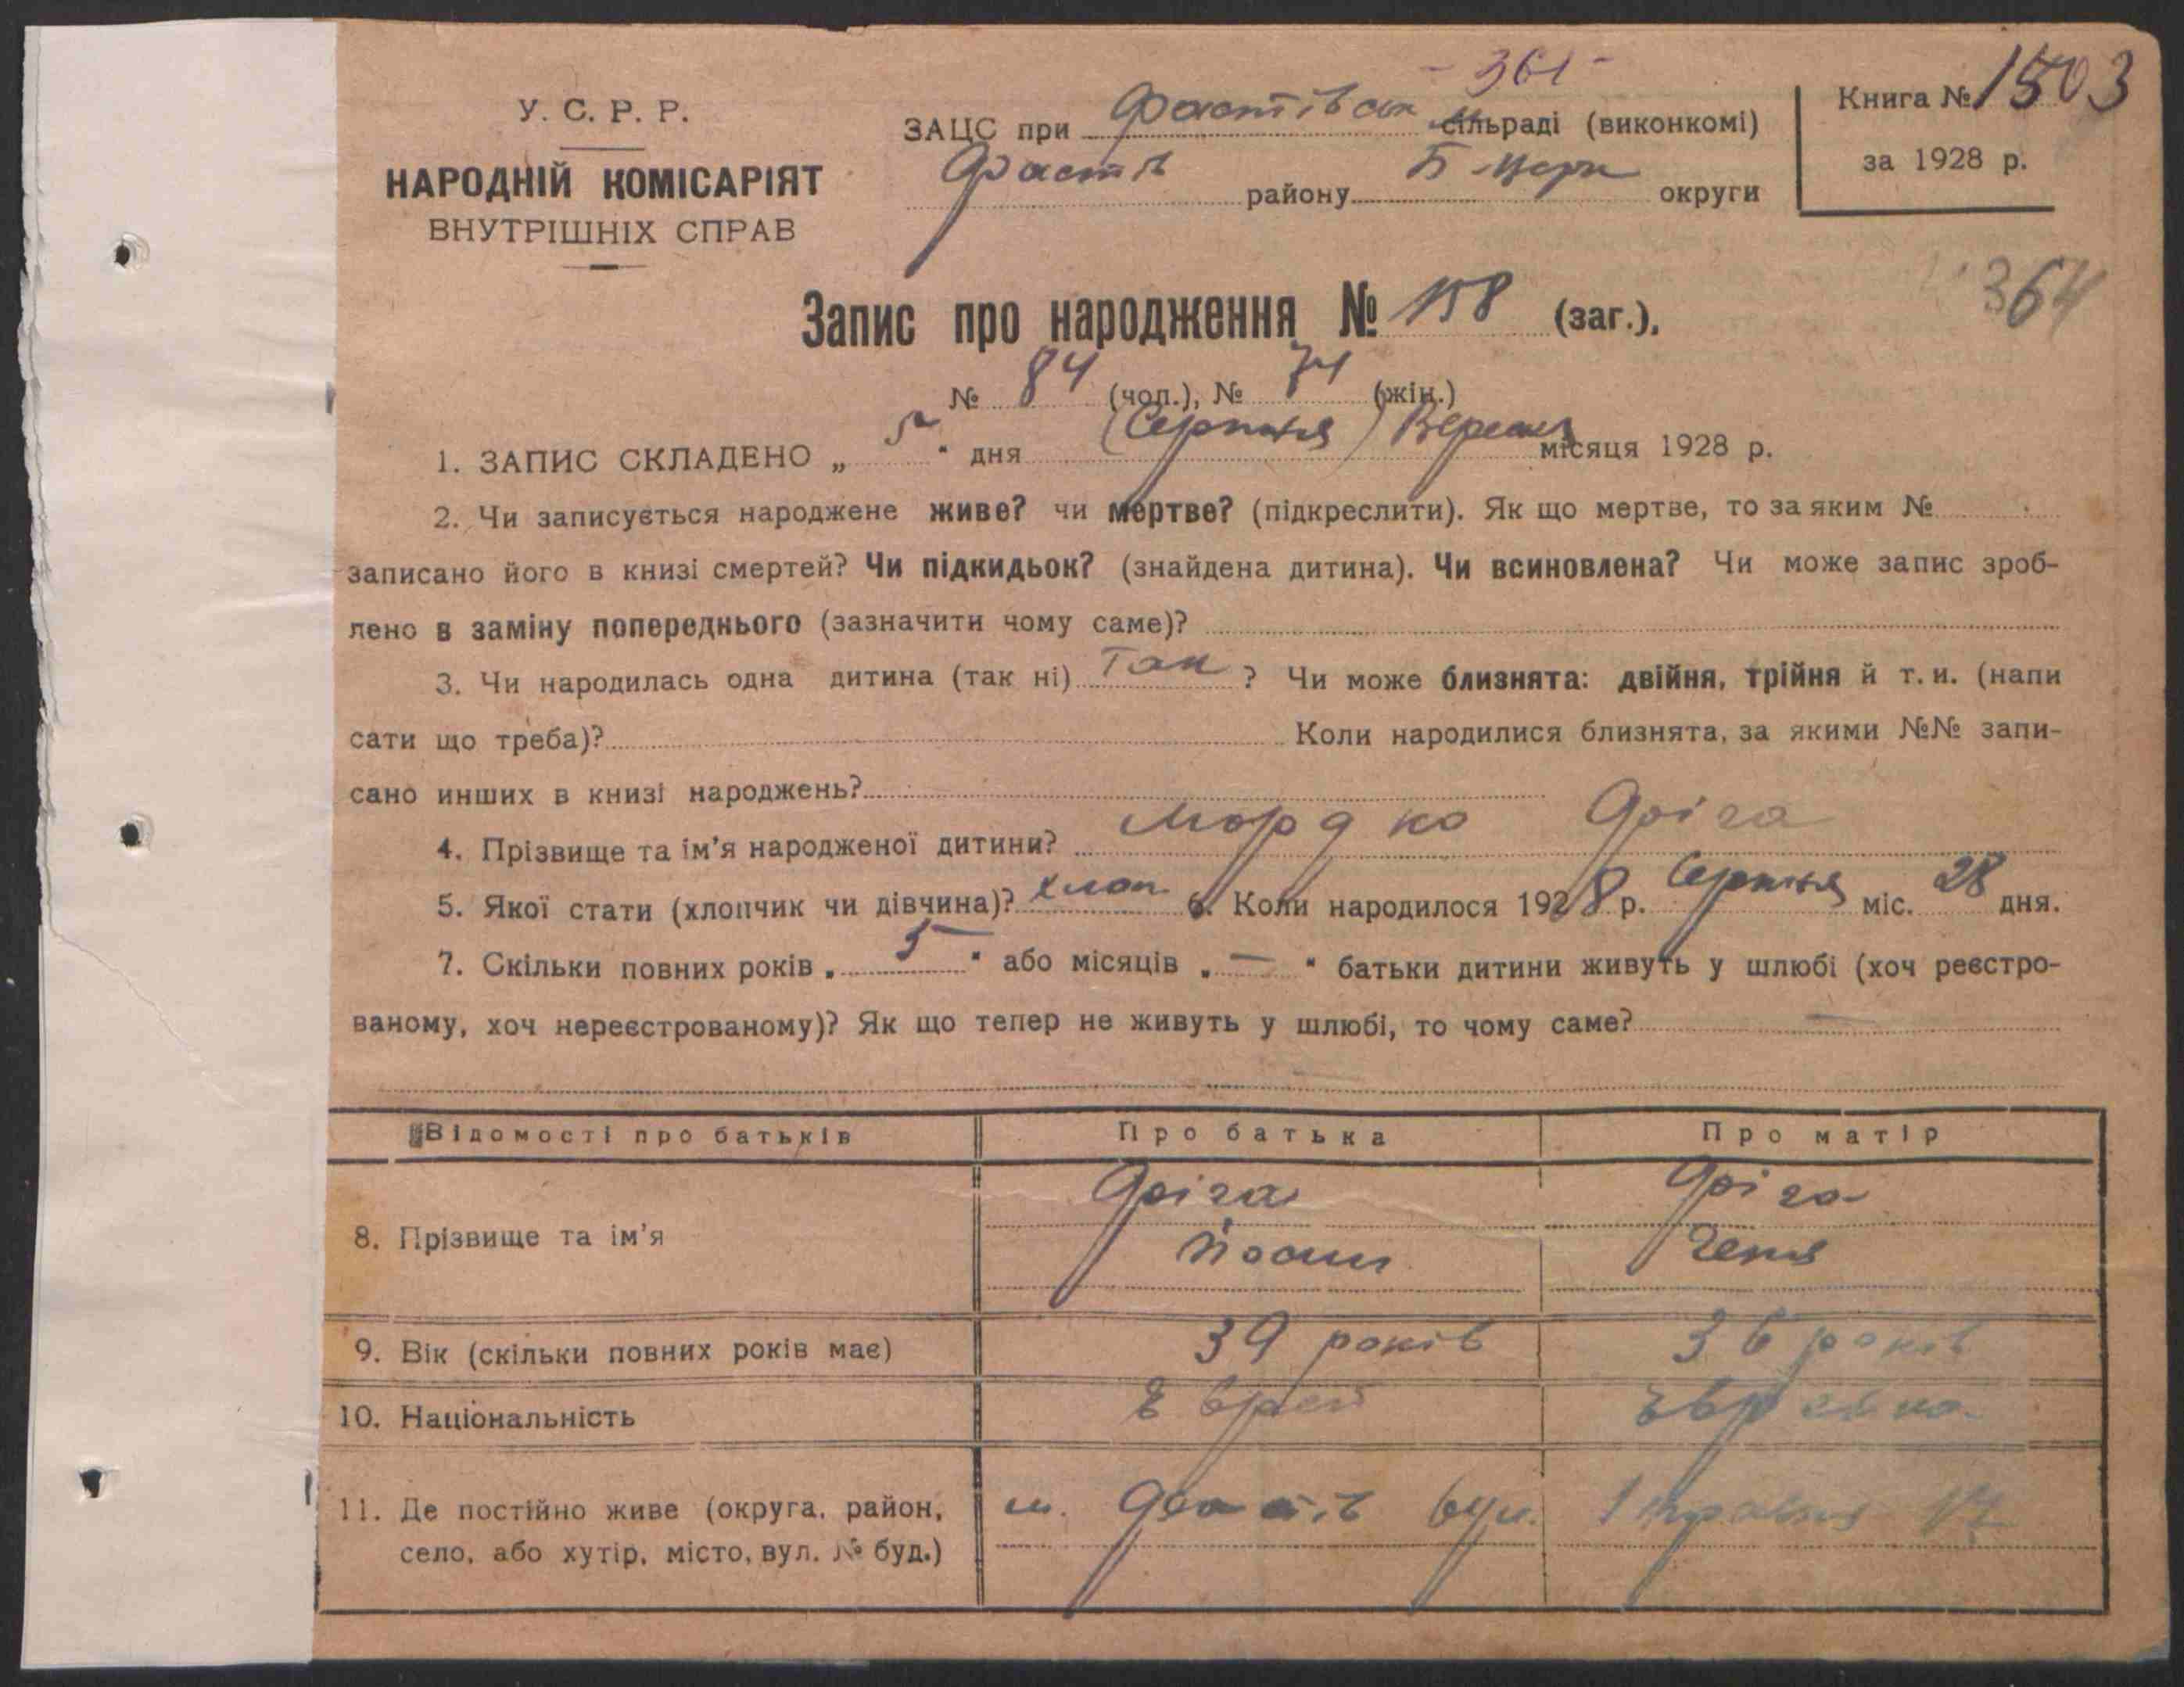 - 361 -
У. С. Р. Р.
НАРОДНІЙ КОМІСАРІЯТ
ВНУТРІШНІХ СПРАВ
ЗАЦС при Фастівськ сільраді (виконкомі)
Фастів району Б-Церк округи
Книга № 1503
за 1928 р.
364
Запис про народження № 158 (заг.),
№ 84 (чол.), № 74 (жін.)
1. ЗАПИС СКЛАДЕНО „ 5 " дня (Серпня) Вересня місяця 1928 р.
2. Чи записується народжене живе? чи мертве? (підкреслити). Як що мертве, то за яким №
записано його в книзі смертей? Чи підкидьок? (знайдена дитина). Чи всиновлена? Чи може запис зроб-
лено в заміну попереднього (зазначити чому саме)?
3. Чи народилась одна дитина (так ні) Так ? Чи може близнята: двійня, трійня й т. и. (напи
сати що треба)? Коли народилися близнята, за якими №№ запи-
сано инших в книзі народжень?
4. Прізвище та ім'я народженої дитини? Мордко Фріга
5. Якої стати (хлопчик чи дівчина)? хлоп. 6. Коли народилося 1928 р. Серпня міс. 28 дня.
7. Скільки повних років „ 5 " або місяців „ — " батьки дитини живуть у шлюбі (хоч реєстро-
ваному, хоч нереєстрованому)? Як що тепер не живуть у шлюбі, то чому саме? —
Відомості про батьків Про батька Про матір
8. Прізвище та ім'я Фріга Фріга
Йосип Геня
9. Вік (скільки повних років має) 39 років 36 років
10. Національність Єврей Єврейка
11. Де постійно живе (округа, район, м. Фастів вул. 1 травня 17
село, або хутір, місто, вул. № буд.)